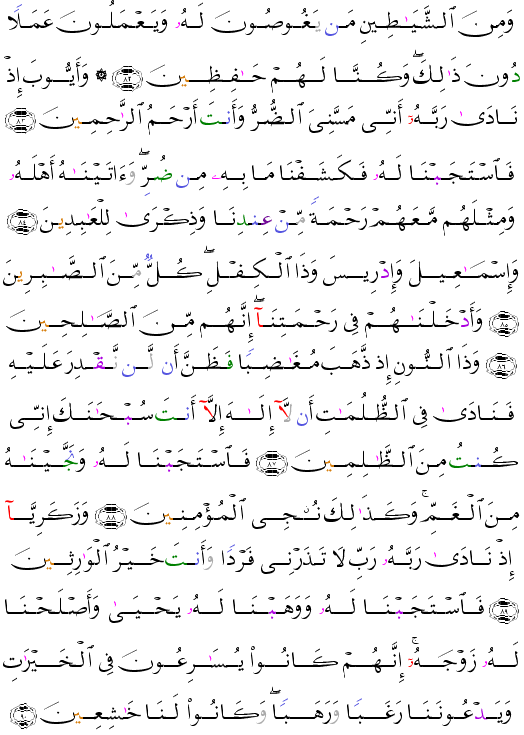 وَمِنَ ٱلشَّيَـٰطِينِ مَن يَغُوصُونَ لَهُۥ وَيَعْمَلُونَ عَمَلًا
دُونَ ذَٰلِكَ ۖ وَكُنَّا لَهُمْ حَـٰفِظِينَ ﴿٨٢﴾ ۞ وَأَيُّوبَ إِذْ
نَادَىٰ رَبَّهُۥٓ أَنِّى مَسَّنِىَ ٱلضُّرُّ وَأَنتَ أَرْحَمُ ٱلرَّٰحِمِينَ ﴿٨٣﴾
فَٱسْتَجَبْنَا لَهُۥ فَكَشَفْنَا مَا بِهِۦ مِن ضُرٍّ ۖ وَءَاتَيْنَـٰهُ أَهْلَهُۥ
وَمِثْلَهُم مَّعَهُمْ رَحْمَةً مِّنْ عِندِنَا وَذِكْرَىٰ لِلْعَـٰبِدِينَ ﴿٨٤﴾
وَإِسْمَـٰعِيلَ وَإِدْرِيسَ وَذَا ٱلْكِفْلِ ۖ كُلٌّ مِّنَ ٱلصَّـٰبِرِينَ
﴿٨٥﴾ وَأَدْخَلْنَـٰهُمْ فِى رَحْمَتِنَآ ۖ إِنَّهُم مِّنَ ٱلصَّـٰلِحِينَ
﴿٨٦﴾ وَذَا ٱلنُّونِ إِذ ذَّهَبَ مُغَـٰضِبًا فَظَنَّ أَن لَّن نَّقْدِرَ عَلَيْهِ
فَنَادَىٰ فِى ٱلظُّلُمَـٰتِ أَن لَّآ إِلَـٰهَ إِلَّآ أَنتَ سُبْحَـٰنَكَ إِنِّى
كُنتُ مِنَ ٱلظَّـٰلِمِينَ ﴿٨٧﴾ فَٱسْتَجَبْنَا لَهُۥ وَنَجَّيْنَـٰهُ
مِنَ ٱلْغَمِّ ۚ وَكَذَٰلِكَ نُـۨجِى ٱلْمُؤْمِنِينَ ﴿٨٨﴾ وَزَكَرِيَّآ
إِذْ نَادَىٰ رَبَّهُۥ رَبِّ لَا تَذَرْنِى فَرْدًا وَأَنتَ خَيْرُ ٱلْوَٰرِثِينَ
﴿٨٩﴾ فَٱسْتَجَبْنَا لَهُۥ وَوَهَبْنَا لَهُۥ يَحْيَىٰ وَأَصْلَحْنَا
لَهُۥ زَوْجَهُۥٓ ۚ إِنَّهُمْ كَانُوا۟ يُسَـٰرِعُونَ فِى ٱلْخَيْرَٰتِ
وَيَدْعُونَنَا رَغَبًا وَرَهَبًا ۖ وَكَانُوا۟ لَنَا خَـٰشِعِينَ ﴿٩٠﴾